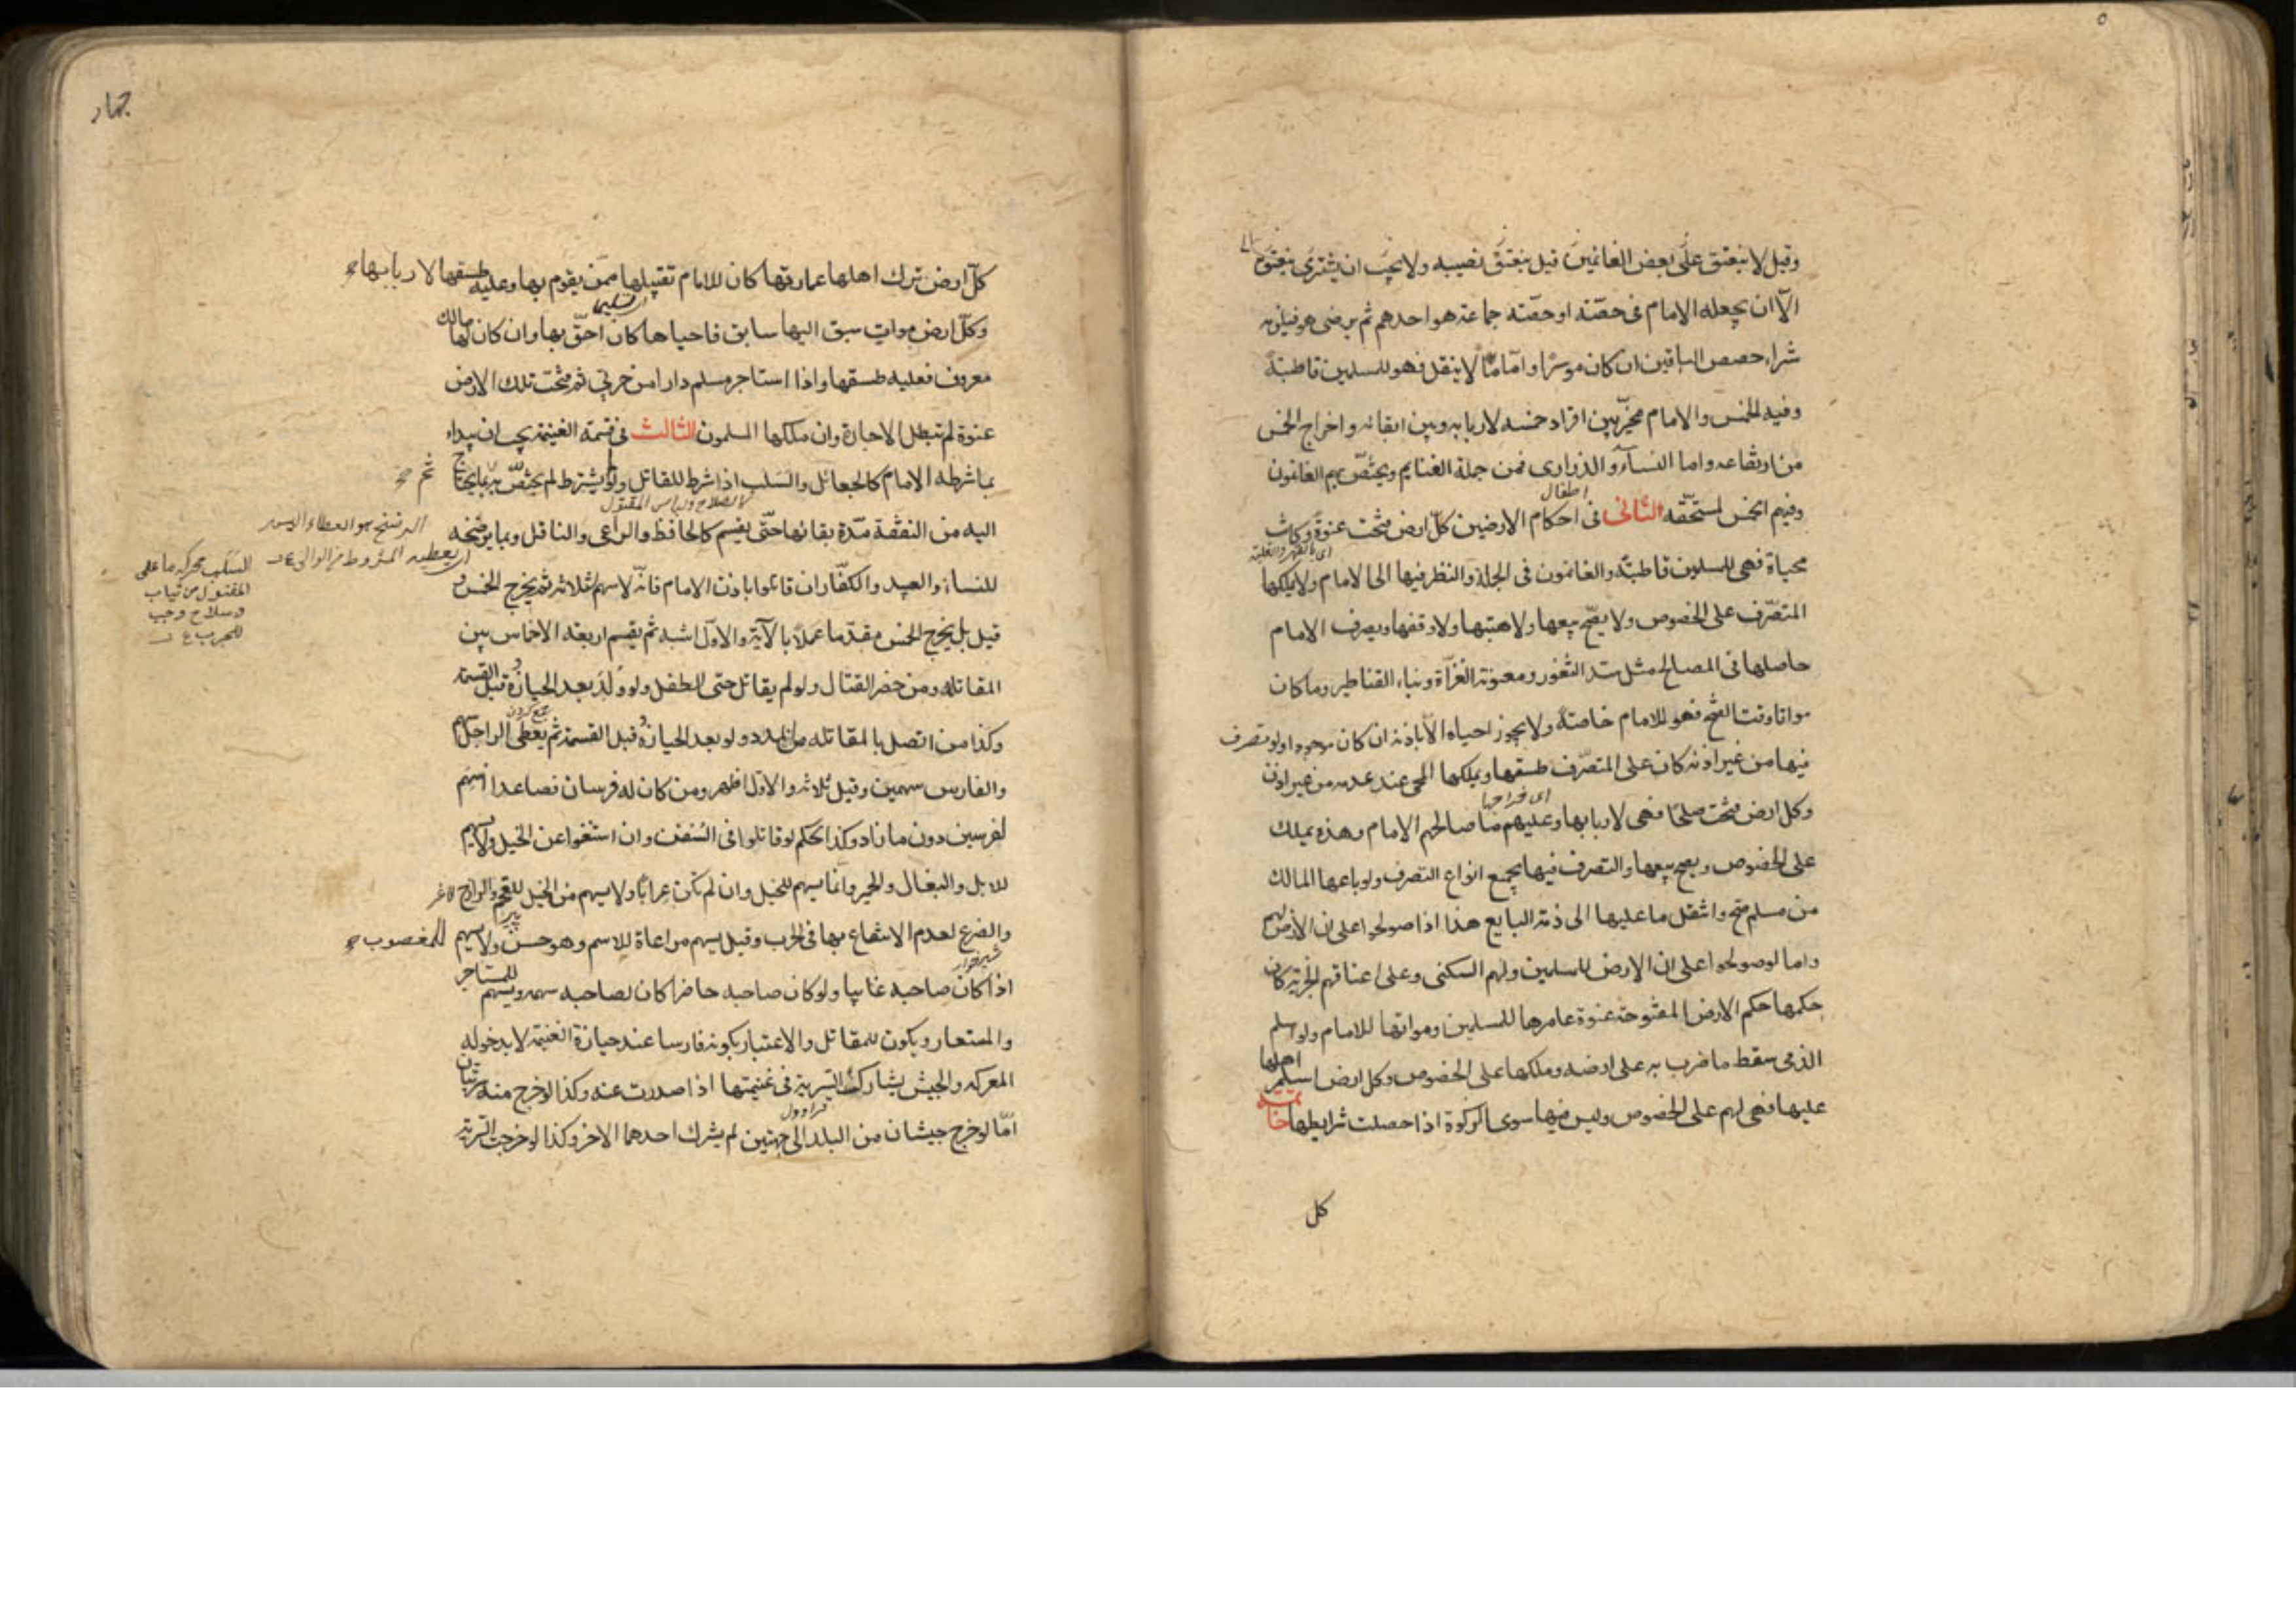 وقيل لا ينعتق على بعض الغانمين قيل ينعتق نصيبه ولا يجب ان يشترى
الا ان يجعله الامام فى حصته او حصته جماعة هو احدهم ثم يرضى هو فيلزمه
شراء حصص الباقين ان كان موسرا واما ما لا ينقل فهو للمسلمين قاطبة
وفيه الخمس والامام مخير بين افراد خمسه لاربابه وبين ابقائه واخراج الخمس
من ارتفاعه واما النساء والذرارى فمن جملة الغنايم ويختص بهم الغانمون
اطفال
وفيهم الخمس لمستحقه الثانى فى احكام الارضين كل ارض فتحت عنوة وكانت
اى بالقهر والغلبة
محياة فهى للمسلمين قاطبة والغانمون فى الجملة والنظر فيها الى الامام ولا يملكها
المتصرف على الخصوص ولا يصح بيعها ولا هبتها ولا وقفها ويصرف الامام
حاصلها فى المصالح مثل سد الثغور ومعونة الغزاة وبناء القناطير وما كان
مواتا وقت الفتح فهو للامام خاصة ولا يجوز احياه الا باذنه ان كان موجودا ولو تصرف
فيها من غير اذنه كان على المتصرف طسقها ويملكها المحى عند عدمه من غير اذن
اى خراجها
وكل ارض فتحت صلحا فهى لاربابها وعليهم ما صالحهم الامام وهذه يملك
على الخصوص ويصح بيعها والتصرف فيها بجميع انواع التصرف ولو باعها المالك
من مسلم صح وانتقل ما عليها الى ذمة البايع هذا اذا صولحوا على ان الارض لهم
واما لو صولحوا على ان الارض للمسلمين ولهم السكنى وعلى اعناقهم الجزية كان
حكمها حكم الارض المفتوحة عنوة عامرها للمسلمين ومواتها للامام ولو اسلم
الذمى سقط ما ضرب به على ارضه وملكها على الخصوص وكل ارض اسلم اهلها
عليها فهى لهم على الخصوص وليس فيها سوى الزكوة اذا حصلت شرايطها خاتمة
كل
جهاد
كل ارض ترك اهلها عمارتها كان للامام تقبيلها ممن يقوم بها وعليه طسقها لاربابها
وكل ارض موات سبق اليها سابق فاحياها كان احق بها وان كان لها مالك
معروف فعليه طسقها واذا استاجر مسلم دارا من حربى ثم فتحت تلك الارض
عنوة لم تبطل الاجارة وان ملكها المسلمون الثالث فى قسمة الغنيمة يجب ان يبداء
بما شرطه الامام كالجعائل والسلب اذا شرط للقاتل ولو لم يشترط لم يختص به ثم بما يحتاج
كالسلاح ولباس المقتول
اليه من النفقة مدة بقائها حتى يقسم كالحافظ والراعى والناقل وبما يرضخه
الرضخ هو العطاء اليسير
السلب محركة ما على
المقتول من ثياب
وسلاح
للنساء والعبيد والكفار ان قاتلوا باذن الامام فانه لا سهم للثلاثة ثم يخرج الخمس و
قيل بل يخرج الخمس مقدما عملا بالآية والاول اشبه ثم يقسم اربعة الاخماس بين
المقاتلة ومن حضر القتال ولو لم يقاتل حتى الطفل ولو ولد بعد الحيازة قبل القسمة
جمع كردن
وكذا من اتصل بالمقاتلة من المدد ولو بعد الحيازة قبل القسمة ثم يعطى الراجل سهم
والفارس سهمين وقيل ثلاثة والاول اظهر ومن كان له فرسان فصاعدا اسهم
لفرسين دون ما زاد وكذا الحكم لو قاتلوا فى السفن وان استغنوا عن الخيل ولا يسهم
للابل والبغال والحمير وانما يسهم للخيل وان لم تكن عرابا ولا يسهم من الخيل للقحم والرازح
پير
والضرع لعدم الانتفاع بها فى الحرب وقيل يسهم مراعاة للاسم وهو حسن ولا يسهم للمغصوب
شيرخوار
اذا كان صاحبه غايبا ولو كان صاحبه حاضرا كان لصاحبه سهمه ويسهم للمستاجر
والمستعار ويكون للمقاتل والاعتبار بكونه فارسا عند حيازة الغنيمة لا بدخوله
المعركة والجيش يشارك السرية فى غنيمتها اذا صدرت عنه وكذا لو خرج منه سريتان
اما لو خرج جيشان من البلد الى جهتين لم يشرك احدهما الاخر وكذا لو خرجت السرية